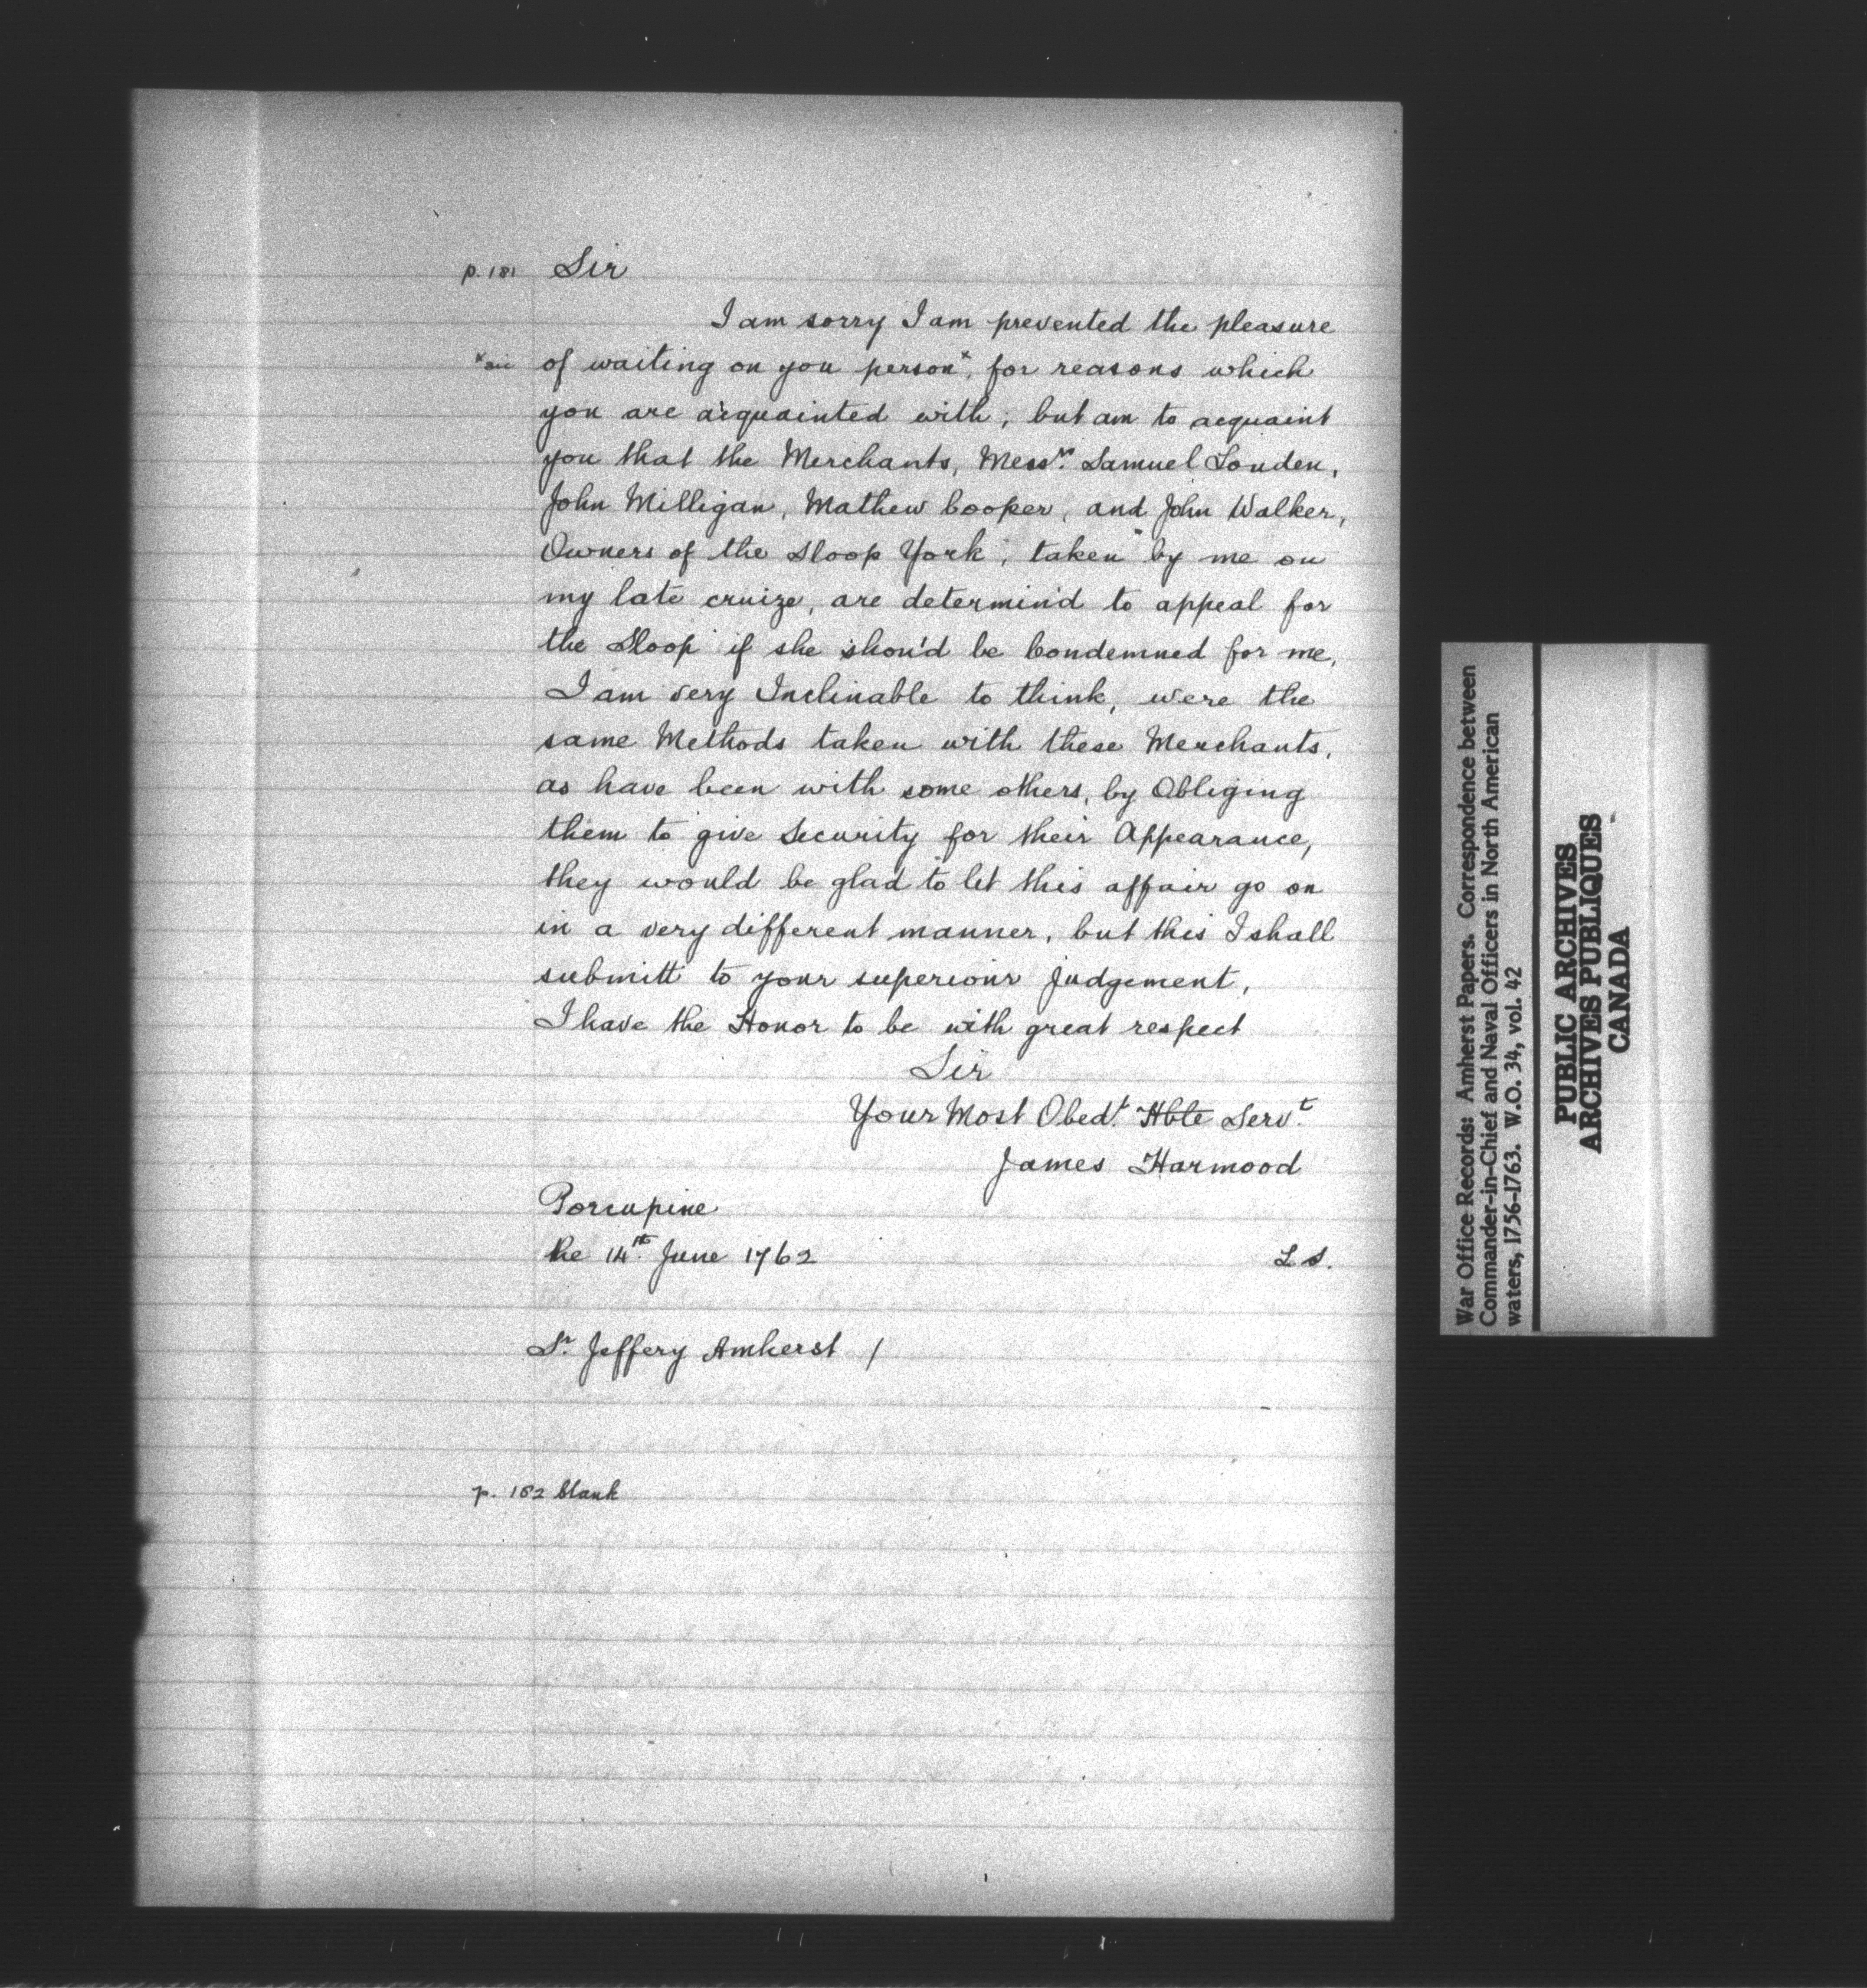 p. 181 Sir
I am sorry I am prevented the pleasure
*sic of waiting on you person*, for reasons which
you are acquainted with; but am to acquaint
you that the Merchants, Messrs. Samuel Louden,
John Milligan, Mathew Cooper, and John Walker,
Owners of the Sloop York, taken by me on
my late cruize, are determin'd to appeal for
the Sloop if she shou'd be Condemned for me,
I am very Inclinable to think, were the
same Methods taken with these Merchants,
as have been with some others, by Obliging
them to give Security for their Appearance,
they would be glad to let this affair go on
in a very different manner, but this I shall
submitt to your superiour Judgement,
I have the Honor to be with great respect
Sir
Your Most Obedt. Hble Servt.
James Harmood
Porcupine
he 14th. June 1762 L S.
Sr. Jeffery Amherst /
p. 182 blank
War Office Records: Amherst Papers. Correspondence between
Commander-in-Chief and Naval Officers in North American
waters, 1756-1763. W.O. 34, vol. 42
PUBLIC ARCHIVES
ARCHIVES PUBLIQUES
CANADA